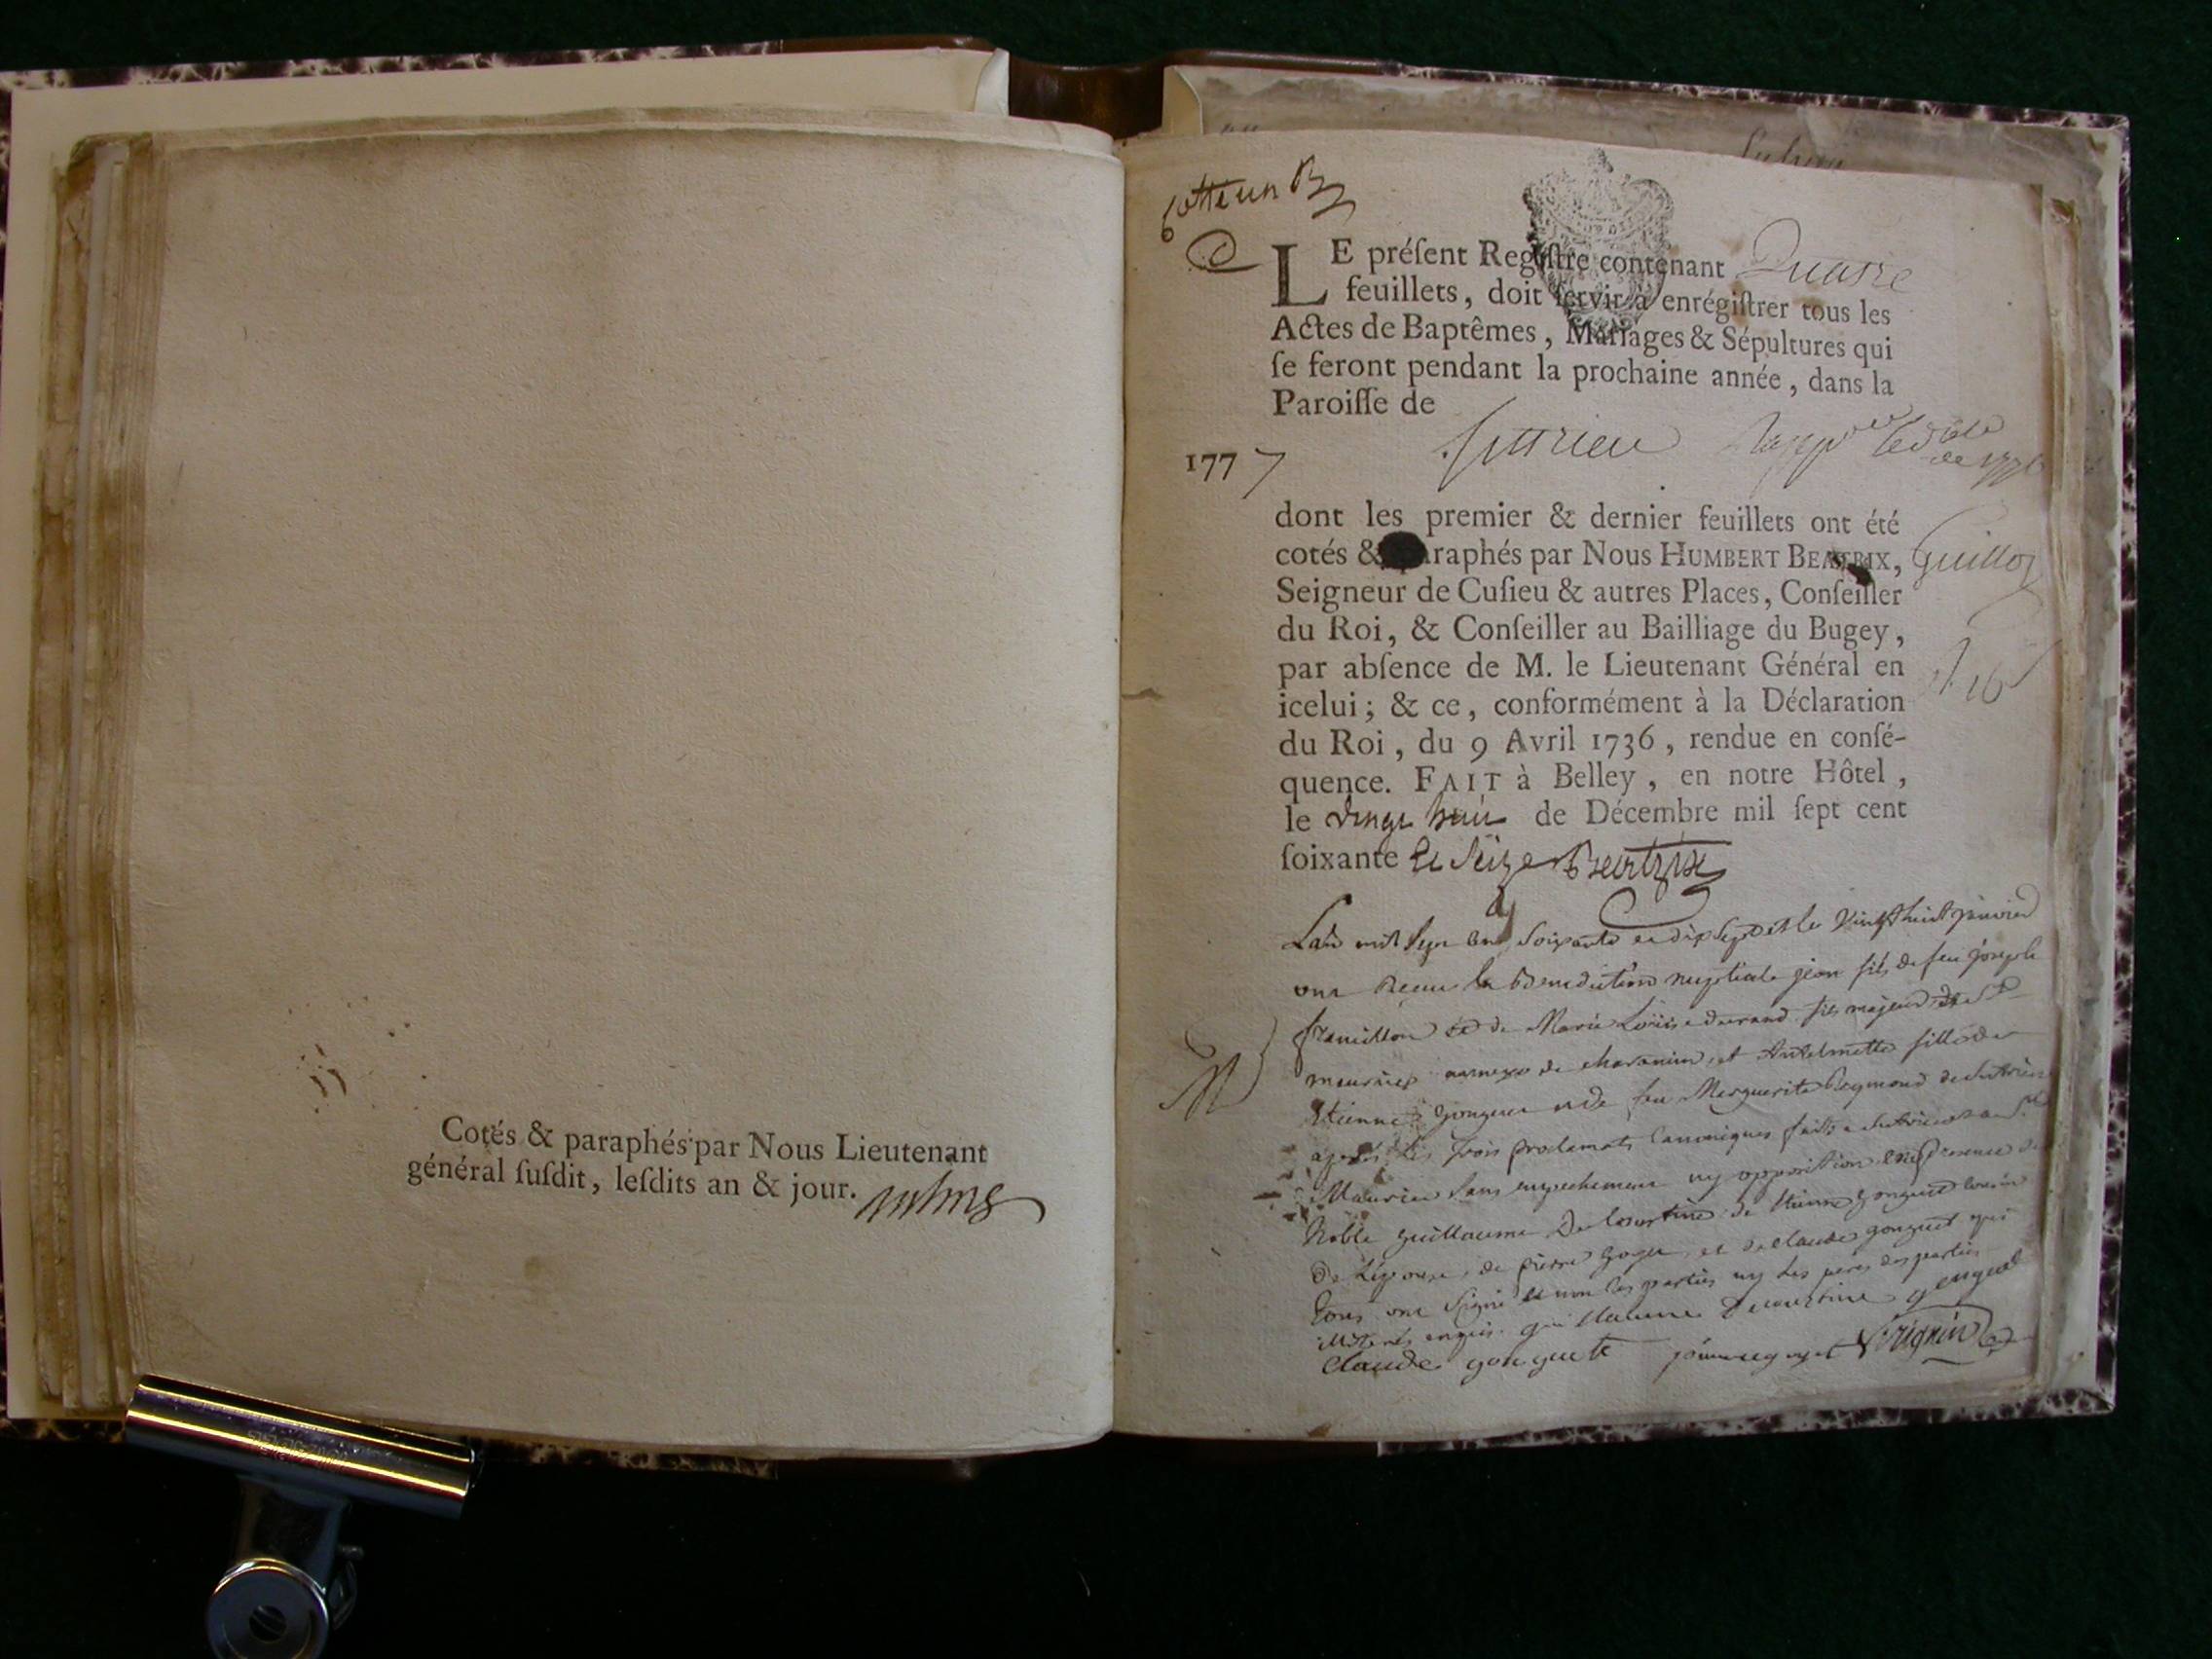 Cotés & paraphés par Nous Lieutenant
général ſuſdit, leſdits an & jour.
Cotté un B
LE préſent Regiſtre contenant Quatre
feuillets, doit ſervir à enrégiſtrer tous les
Actes de Baptêmes, Mariages & Sépultures qui
ſe feront pendant la prochaine année, dans la
Paroiſſe de
Sutrieu
1777
dont les premier & dernier feuillets ont été
cotés & paraphés par Nous HUMBERT BEATRIX,
Seigneur de Cuſieu & autres Places, Conſeiller
du Roi, & Conſeiller au Bailliage du Bugey,
par abſence de M. le Lieutenant Général en
icelui; & ce, conformément à la Déclaration
du Roi, du 9 Avril 1736, rendue en conſé-
quence. FAIT à Belley, en notre Hôtel,
le vingt huit de Décembre mil ſept cent
ſoixante et Seize Beatrix
M
L'an mil Sept cent Soixante et dix Sept et le Vingt huit janvier
ont Reçu la Benediction nuptiale jean fils de feu joseph
et de Marie Louise durand fils majeur de St
maurice annexe de charancin et Antelmette fille de
Etienne gonguet et de feu Marguerite Reymond de Sutrieu
après les trois proclamats Canoniques faits a Sutrieu et a St
Maurice Sans empechement ny opposition en presence de
Noble guillaume De de Etienne gonguet cousin
De L'épouse, de pierre et de claude gonguet qui
tous ont Signé et non les parties ny les peres des parties
enquis. guillaume gonguet
claude gonguet